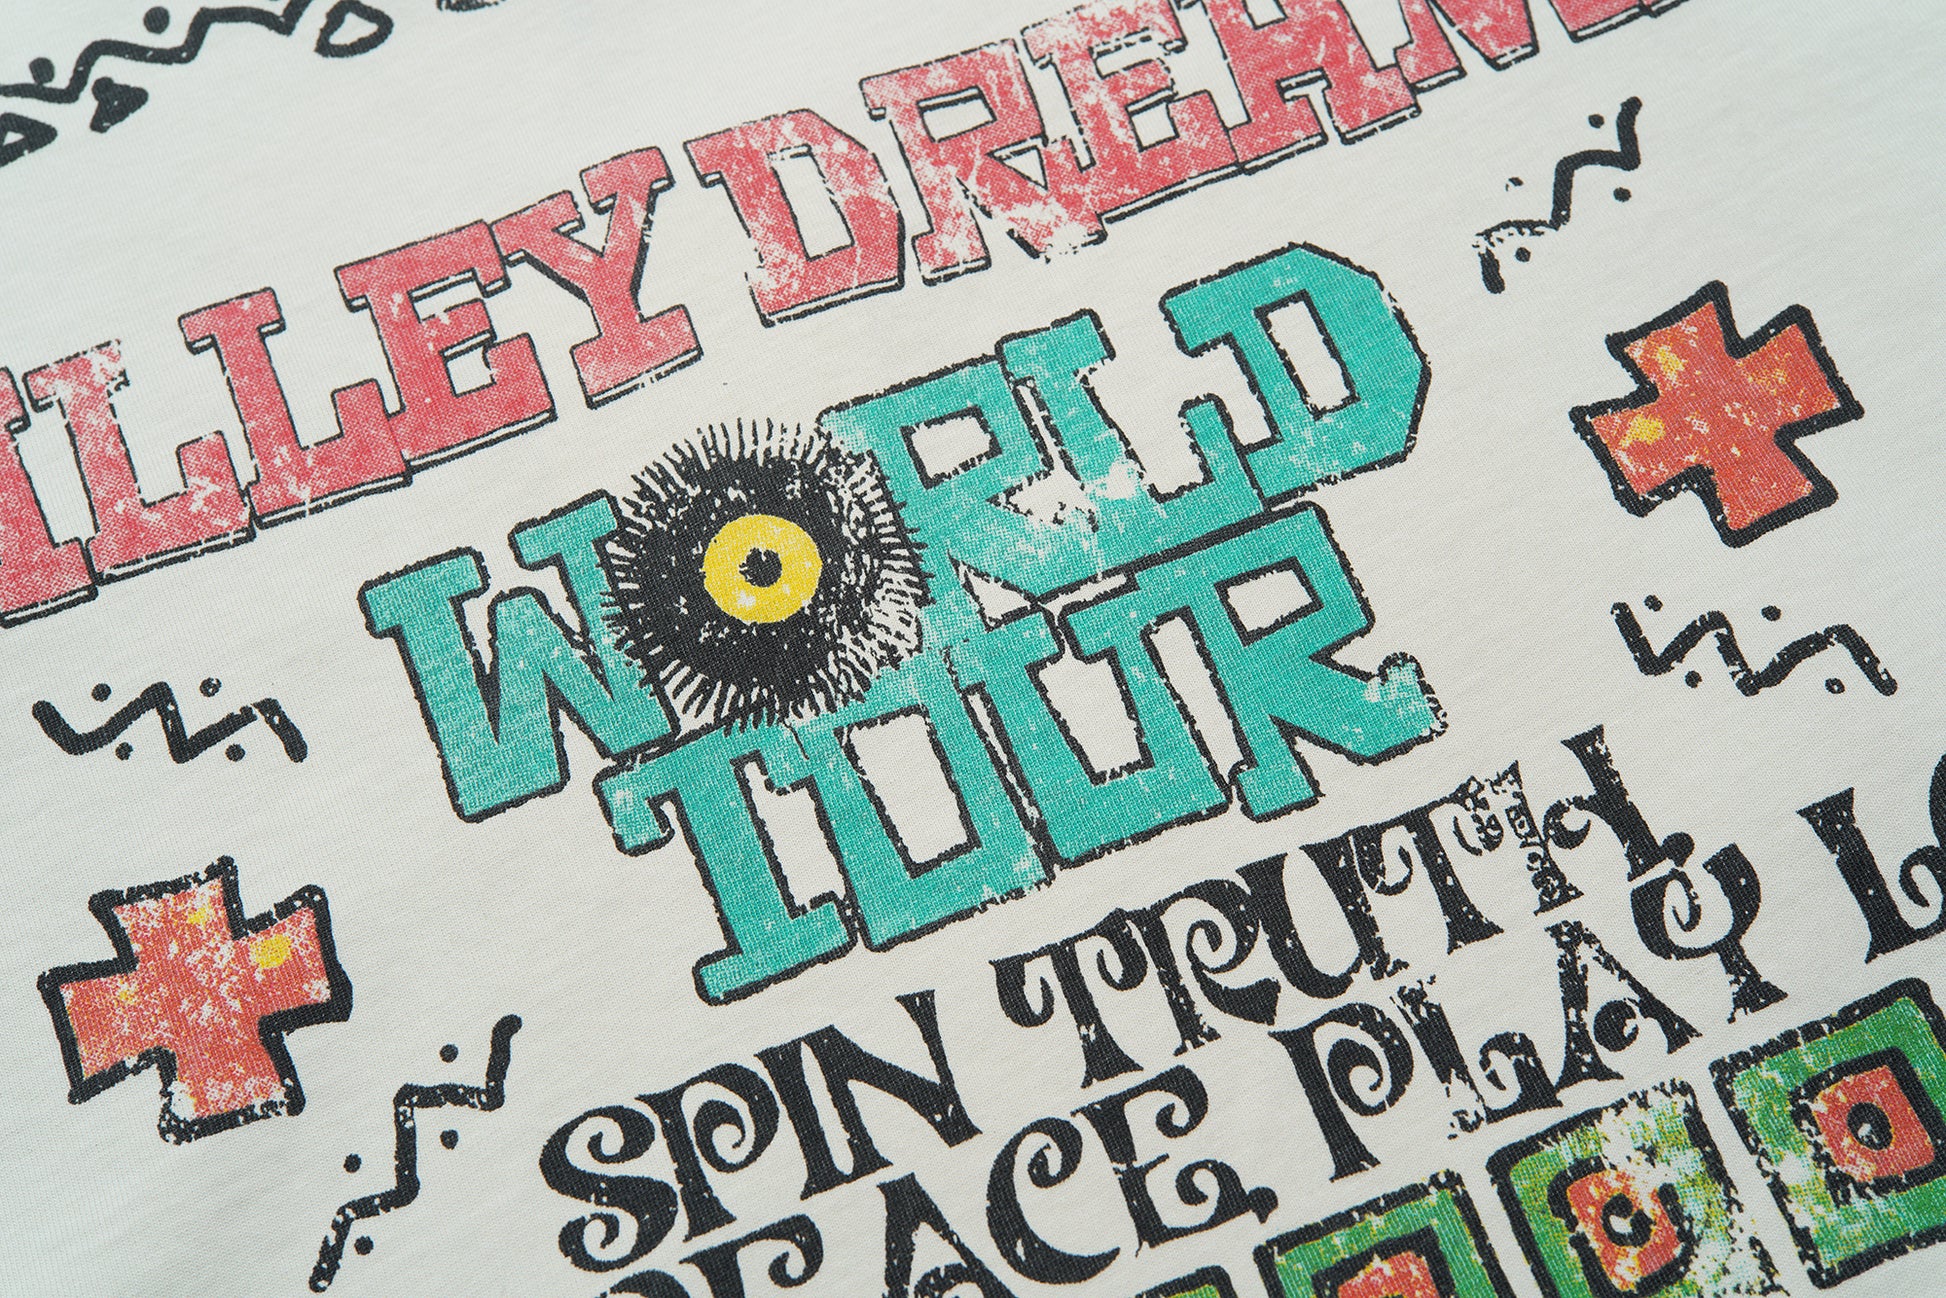 VALLEY DREAM
WORLD
TOUR
SPIN TRUTH
PEACE, PLAY LO